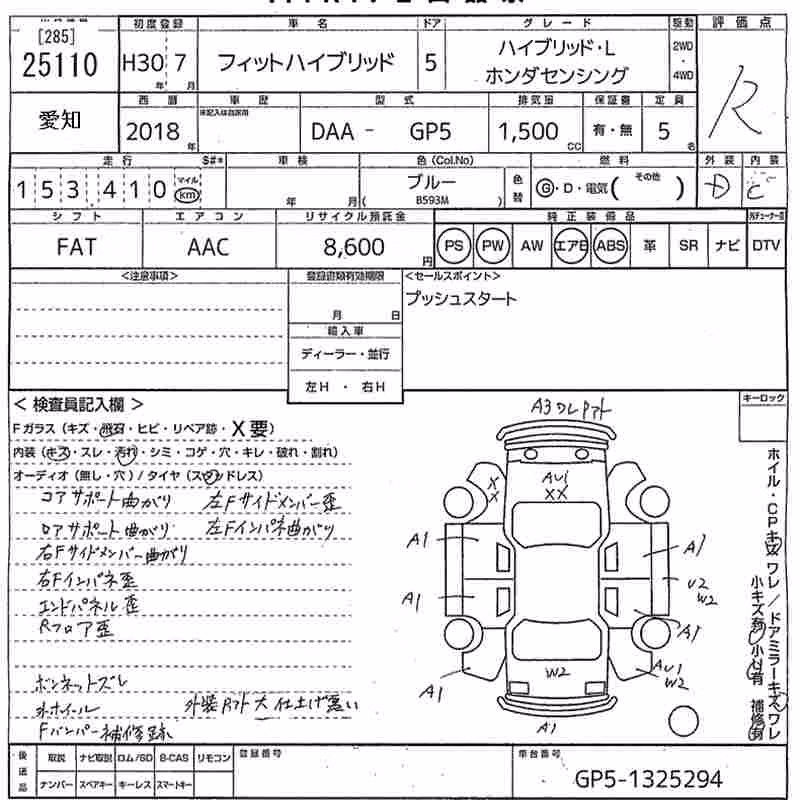 [285]
25110
初度登録 車名 ドア グレード 駆動 評価点
H30 7 フィットハイブリッド 5 ハイブリッド・L
ホンダセンシング
2WD
・
4WD
年 月
R
愛知
西暦 車歴 型式 排気量 保証書 定員
未記入は自家用
2018 年 DAA - GP5 1,500 CC 有・無 5 名
走行 S#* 車検 色(Col.No) 燃料 外装 内装
153410 マイル km 年 月 ( ブルー B593M ) 色替 G・D・電気( その他 ) D C
シフト エアコン リサイクル預託金 純正装備品
FAT AAC 8,600 円 PS PW AW エアB ABS 革 SR ナビ DTV
<注意事項> 登録書類有効期限 <セールスポイント>
プッシュスタート
月 日
輸入車
ディーラー・並行
左H ・ 右H
< 検査員記入欄 >
キーロック
A3ワレアト
Fガラス(キズ・飛石・ヒビ・リペア跡・X要)
内装(キズ・スレ・汚れ・シミ・コゲ・穴・キレ・破れ・割れ)
オーディオ(無し・穴)/タイヤ(スタッドレス)
コアサポート曲がり 左Fサイドメンバー歪
ロアサポート曲がり 左Fインパネ曲がり
右Fサイドメンバー曲がり
右Fインパネ歪
エンドパネル歪
Rフロア歪
ボンネットズレ
外ホイール 外装Rアト大 仕上げ悪い
Fバンパー補修跡
XX
AU1
XX
A1
A1
A1
U2
W2
A1
A1
W2
AU1
W2
A1
ホイル・CPキズワレ/ドアミラーキズワレ
小キズ有 小凹有 補修有
後送品 取説 ナビ取説 ロム/SD B-CAS リモコン 登録番号 車台番号
ナンバー スペアキー キーレス スマートキー GP5-1325294